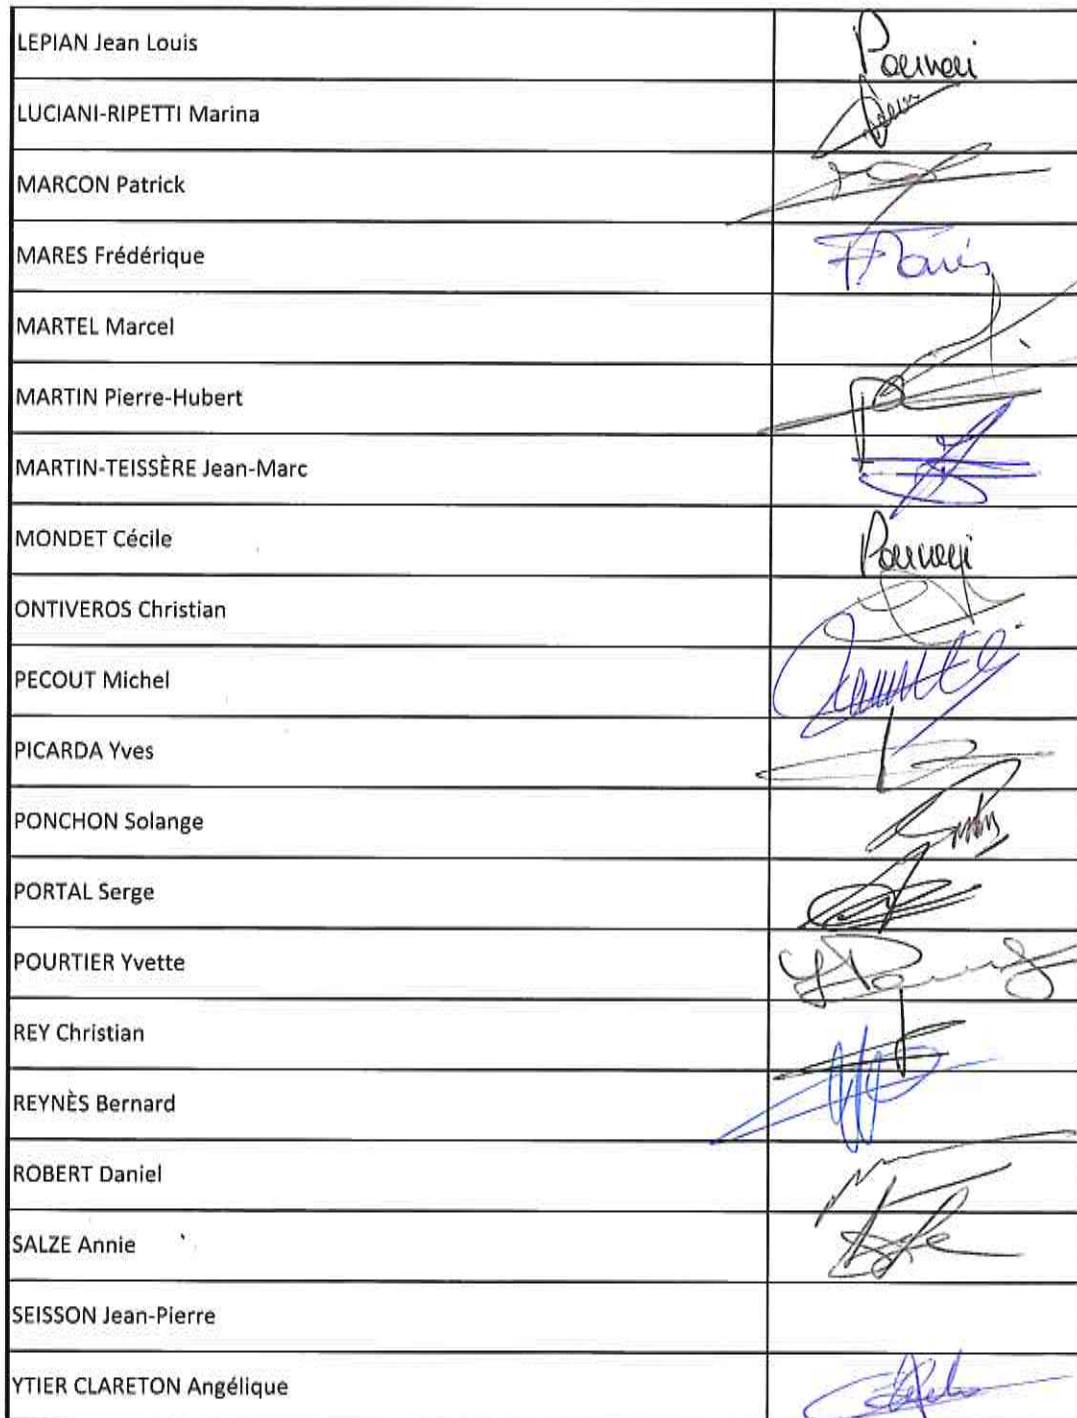 LEPIAN Jean Louis
Pouvoir
LUCIANI-RIPETTI Marina
MARCON Patrick
MARES Frédérique
MARTEL Marcel
MARTIN Pierre-Hubert
MARTIN-TEISSÈRE Jean-Marc
MONDET Cécile
Pouvoir
ONTIVEROS Christian
PECOUT Michel
PICARDA Yves
PONCHON Solange
PORTAL Serge
POURTIER Yvette
REY Christian
REYNÈS Bernard
ROBERT Daniel
SALZE Annie
SEISSON Jean-Pierre
YTIER CLARETON Angélique